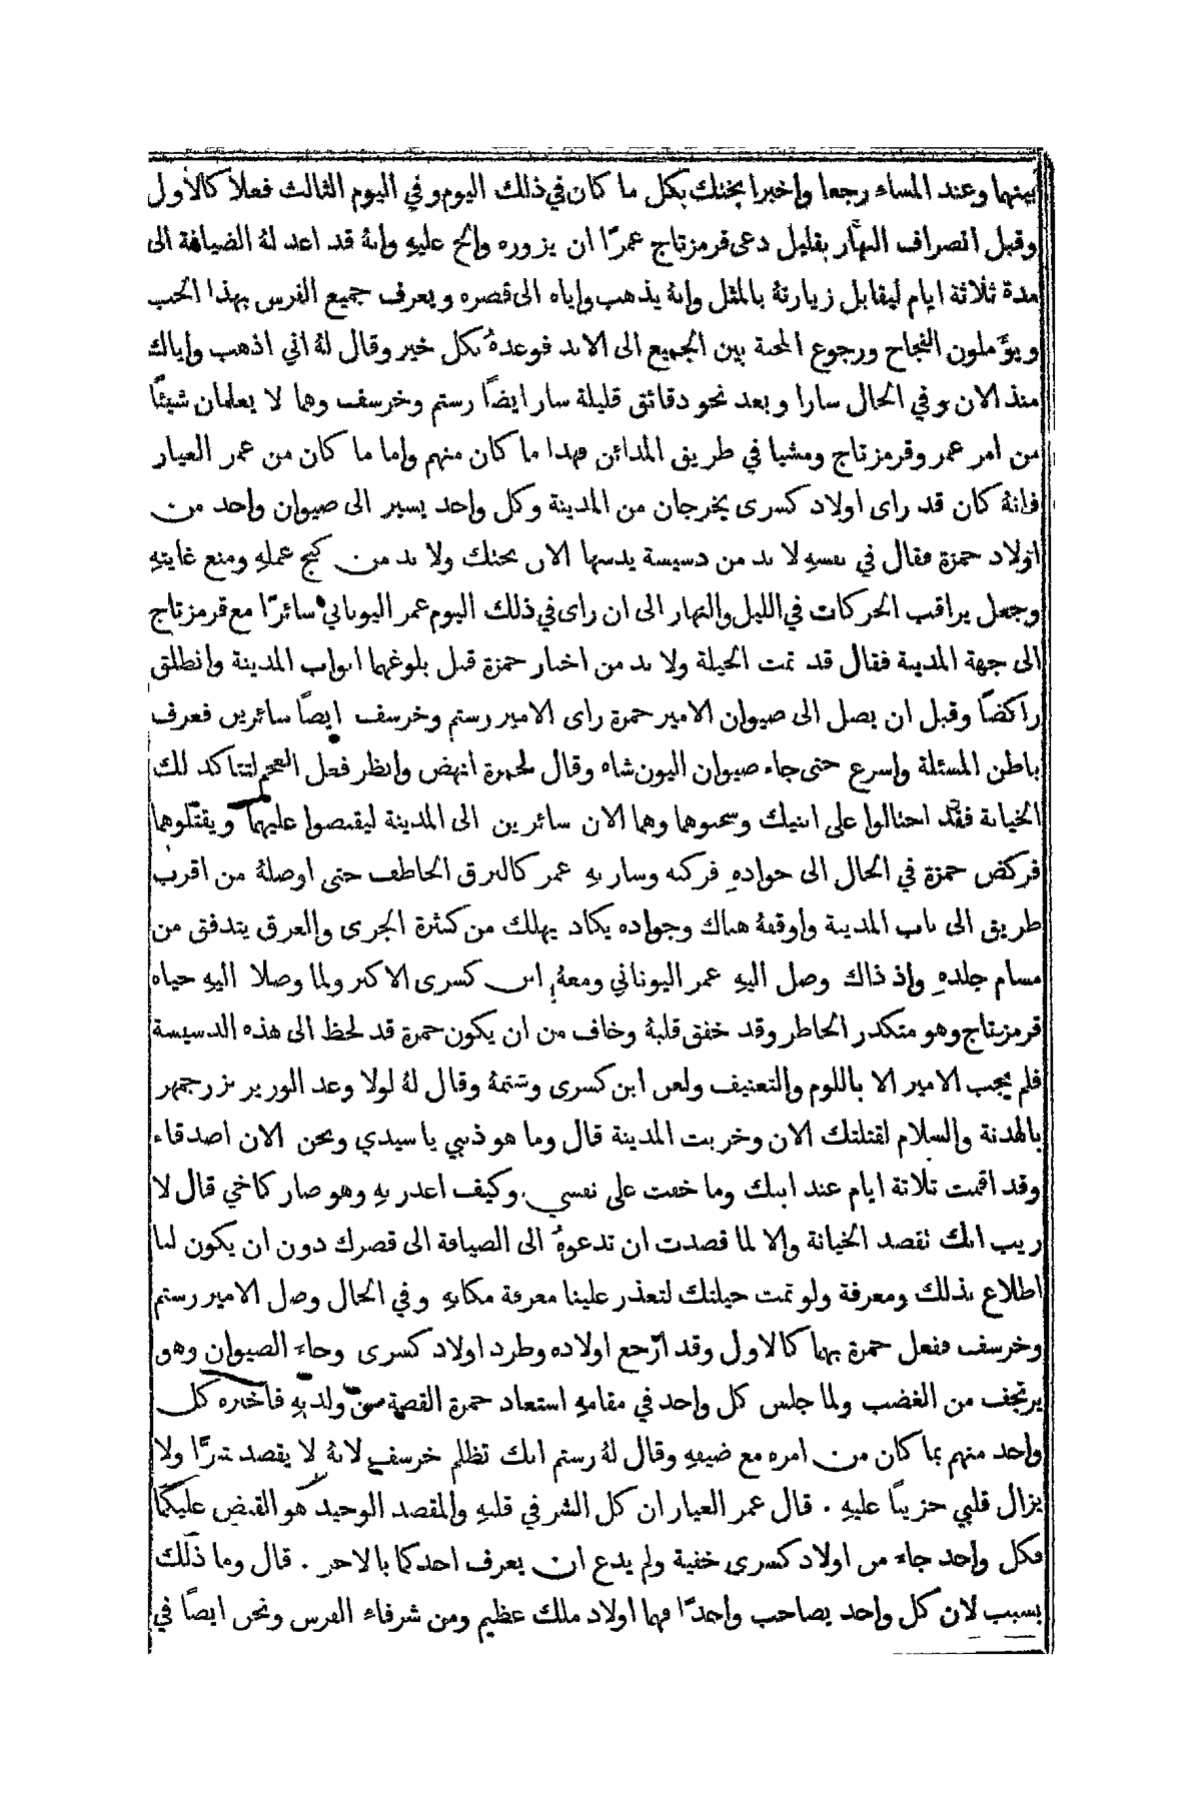 بينهما وعند المساء رجعا واخبرا بختك بكل ما كان في ذلك اليوم وفي اليوم الثالث فعلا كالاول
وقبل انصراف النهار بقليل دعى قرمزتاج عمرًا ان يزوره والح عليهِ وانهُ قد اعد لهُ الضيافة الى
مدة ثلاثة ايام ليقابل زيارتهُ بالمثل وانهُ يذهب واياه الى قصره ويعرف جميع الفرس بهذا الحب
ويؤملون النجاح ورجوع المحبة بين الجميع الى الابد فوعدهُ بكل خير وقال لهُ اني اذهب واياك
منذ الان وفي الحال سارا وبعد نحو دقائق قليلة سار ايضًا رستم وخرسف وهما لا يعلمان شيئًا
من امر عمر وقرمزتاج ومشيا في طريق المدائن فهذا ما كان منهم واما ما كان من عمر العيار
فانهُ كان قد راى اولاد كسرى يخرجان من المدينة وكل واحد يسير الى صيوان واحد من
اولاد حمزة فقال في نفسهِ لا بد من دسيسة يدسها الان بختك ولا بد من كبح عملهِ ومنع غايتهِ
وجعل يراقب الحركات في الليل والنهار الى ان راى في ذلك اليوم عمر اليوناني سائرًا مع قرمزتاج
الى جهة المدينة فقال قد تمت الحيلة ولا بد من اخبار حمزة قبل بلوغهما ابواب المدينة وانطلق
راكضًا وقبل ان يصل الى صيوان الامير حمزة راى الامير رستم وخرسف ايضًا سائرين فعرف
باطن المسئلة واسرع حتى جاء صيوان اليون شاه وقال لحمزة انهض وانظر فعل العجم لتتاكد لك
الخيانة فقد احتالوا على ابنيك وسحبوهما وهما الان سائرين الى المدينة ليقبضوا عليهما ويقتلوهما
فركض حمزة في الحال الى جوادهِ فركبه وسار بهِ عمر كالبرق الخاطف حتى اوصلهُ من اقرب
طريق الى باب المدينة واوقفهُ هناك وجواده يكاد يهلك من كثرة الجرى والعرق يتدفق من
مسام جلدهِ واذ ذاك وصل اليهِ عمر اليوناني ومعهُ ابن كسرى الاكبر ولما وصلا اليهِ حياه
قرمزتاج وهو متكدر الخاطر وقد خفق قلبهُ وخاف من ان يكون حمزة قد لحظ الى هذه الدسيسة
فلم يجب الامير الا باللوم والتعنيف ولعن ابن كسرى وشتمهُ وقال لهُ لولا وعد الوزير بزرجمهر
بالهدنة والسلام لقتلتك الان وخربت المدينة قال وما هو ذنبي يا سيدي ونحن الان اصدقاء
وقد اقمت ثلاثة ايام عند ابنك وما خفت على نفسي وكيف اغدر بهِ وهو صار كاخي قال لا
ريب انك تقصد الخيانة والا لما قصدت ان تدعوهُ الى الضيافة الى قصرك دون ان يكون لنا
اطلاع بذلك ومعرفة ولو تمت حيلتك لتعذر علينا معرفة مكانهِ وفي الحال وصل الامير رستم
وخرسف ففعل حمزة بهما كالاول وقد ارجع اولاده وطرد اولاد كسرى وجاء الصيوان وهو
يرتجف من الغضب ولما جلس كل واحد في مقامهِ استعاد حمزة القصة من ولديهِ فاخبره كل
واحد منهم بما كان من امره مع ضيفهِ وقال لهُ رستم انك تظلم خرسف لانهُ لا يقصد شرًّا ولا
يزال قلبي حزينًا عليهِ . قال عمر العيار ان كل الشر في قلبهِ والمقصد الوحيد هو القبض عليكما
فكل واحد جاء من اولاد كسرى خفية ولم يدع ان يعرف احدكما بالاخر . قال وما ذلك
بسبب لان كل واحد يصاحب واحدًا فهما اولاد ملك عظيم ومن شرفاء الفرس ونحن ايضًا في